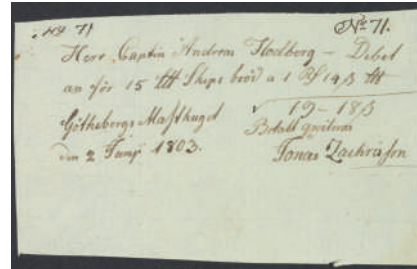 No 71 No 71.
Herr Captin Andreas Flodberg - Debet
an för 15 ℔ Skips bröd a 1 Rd 14 ß ℔
19-18 ß
Götheborgs Masthuget Betalt qvitteras
den 2 Junij 1803. Jonas Zachrisson